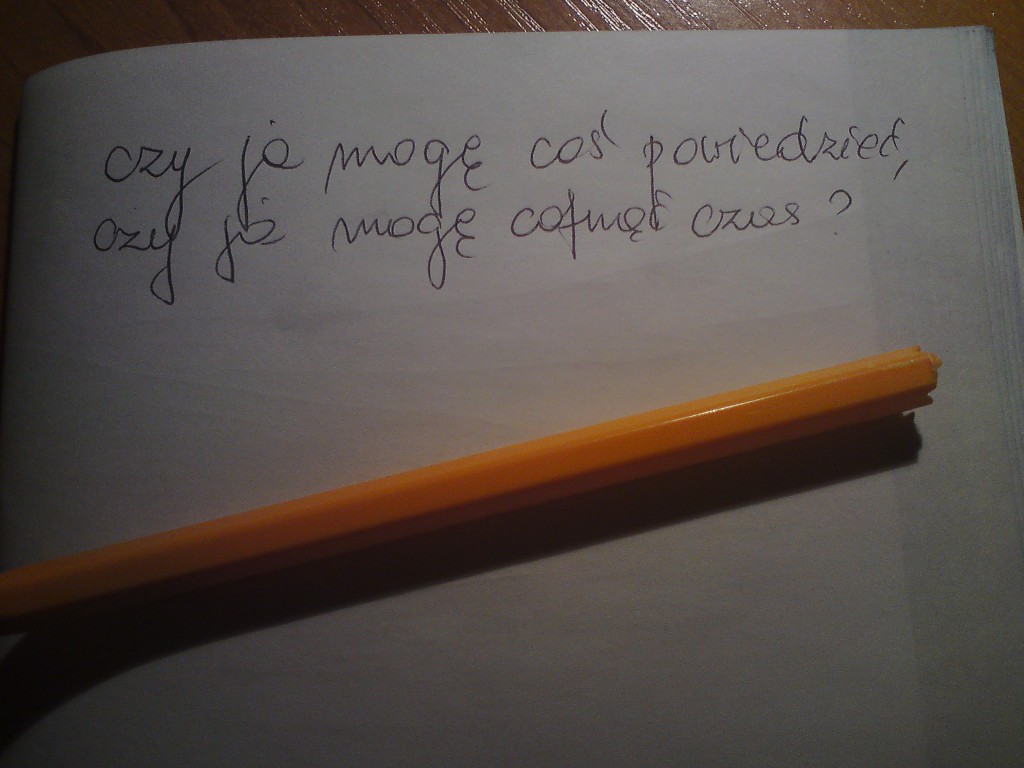 czy ja mogę coś powiedzieć,
czy ja mogę cofnąć czas?